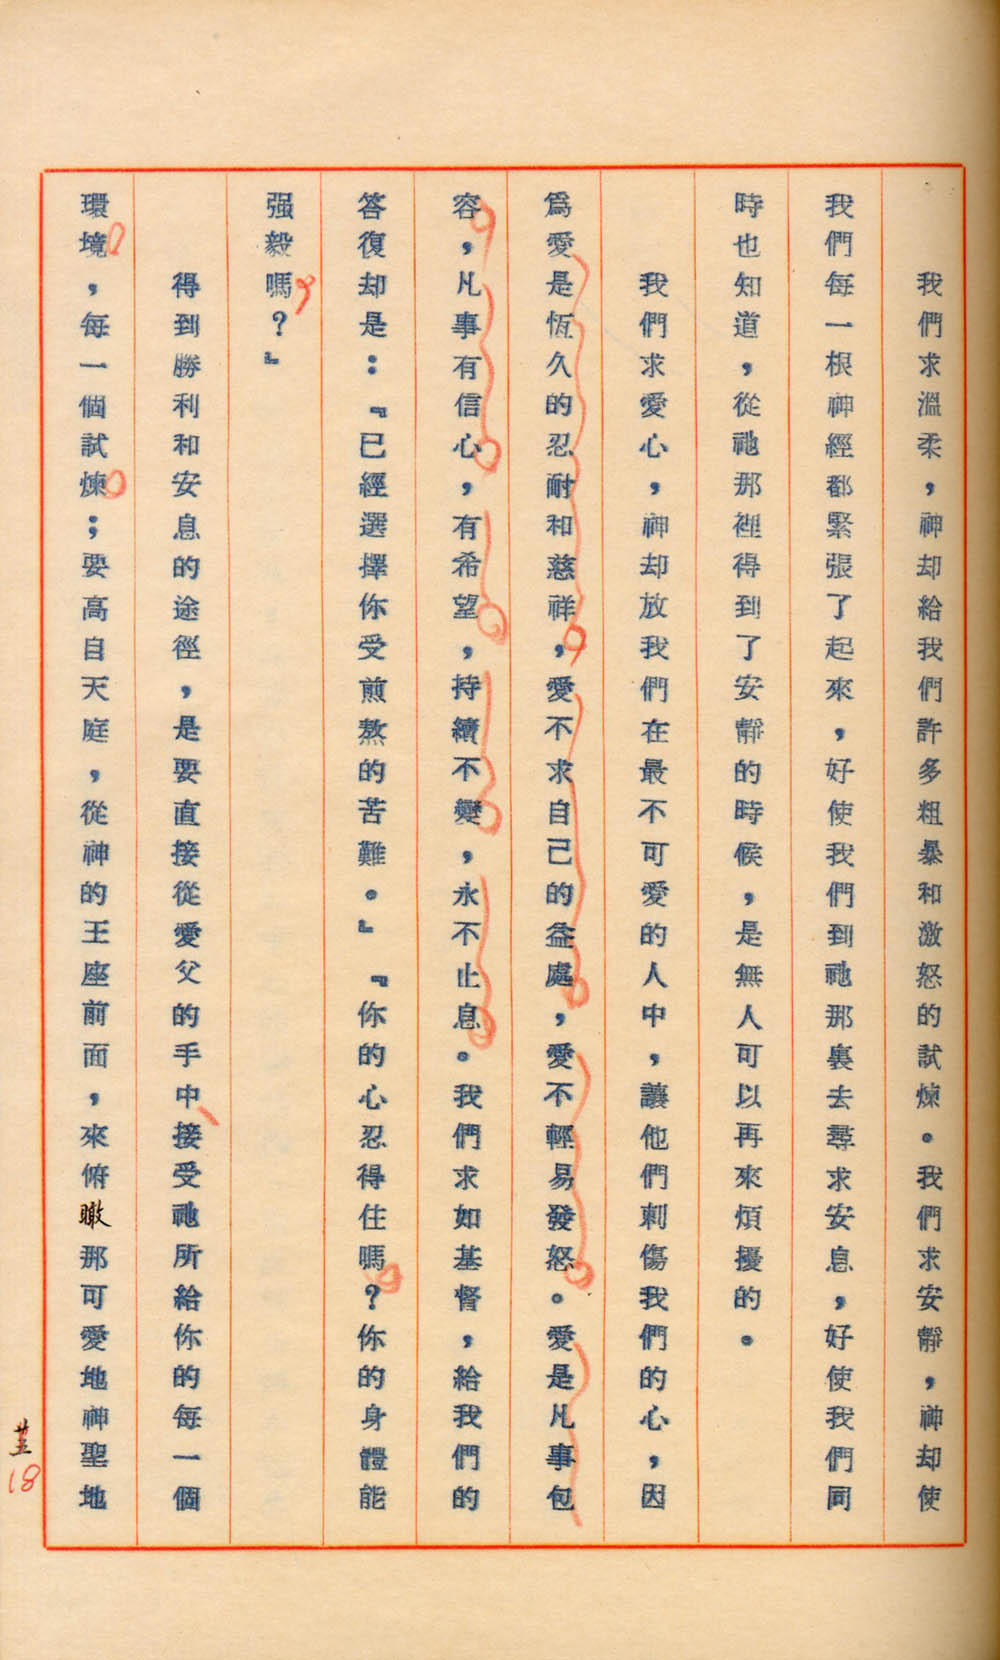 我們求溫柔，神却給我們許多粗暴和激怒的試煉。我們求安靜，神却使
我們每一根神經都緊張了起來，好使我們到祂那裏去尋求安息，好使我們同
時也知道，從祂那裡得到了安靜的時候，是無人可以再來煩擾的。
我們求愛心，神却放我們在最不可愛的人中，讓他們刺傷我們的心，因
爲愛是恆久的忍耐和慈祥，愛不求自己的益處，愛不輕易發怒。愛是凡事包
容，凡事有信心，有希望，持續不變，永不止息。我們求如基督，給我們的
答復却是：『已經選擇你受煎熬的苦難。』『你的心忍得住嗎？你的身體能
强毅嗎？』
得到勝利和安息的途徑，是要直接從愛父的手中接受祂所給你的每一個
環境，每一個試煉；要高自天庭，從神的王座前面，來俯瞰那可愛地神聖地
18